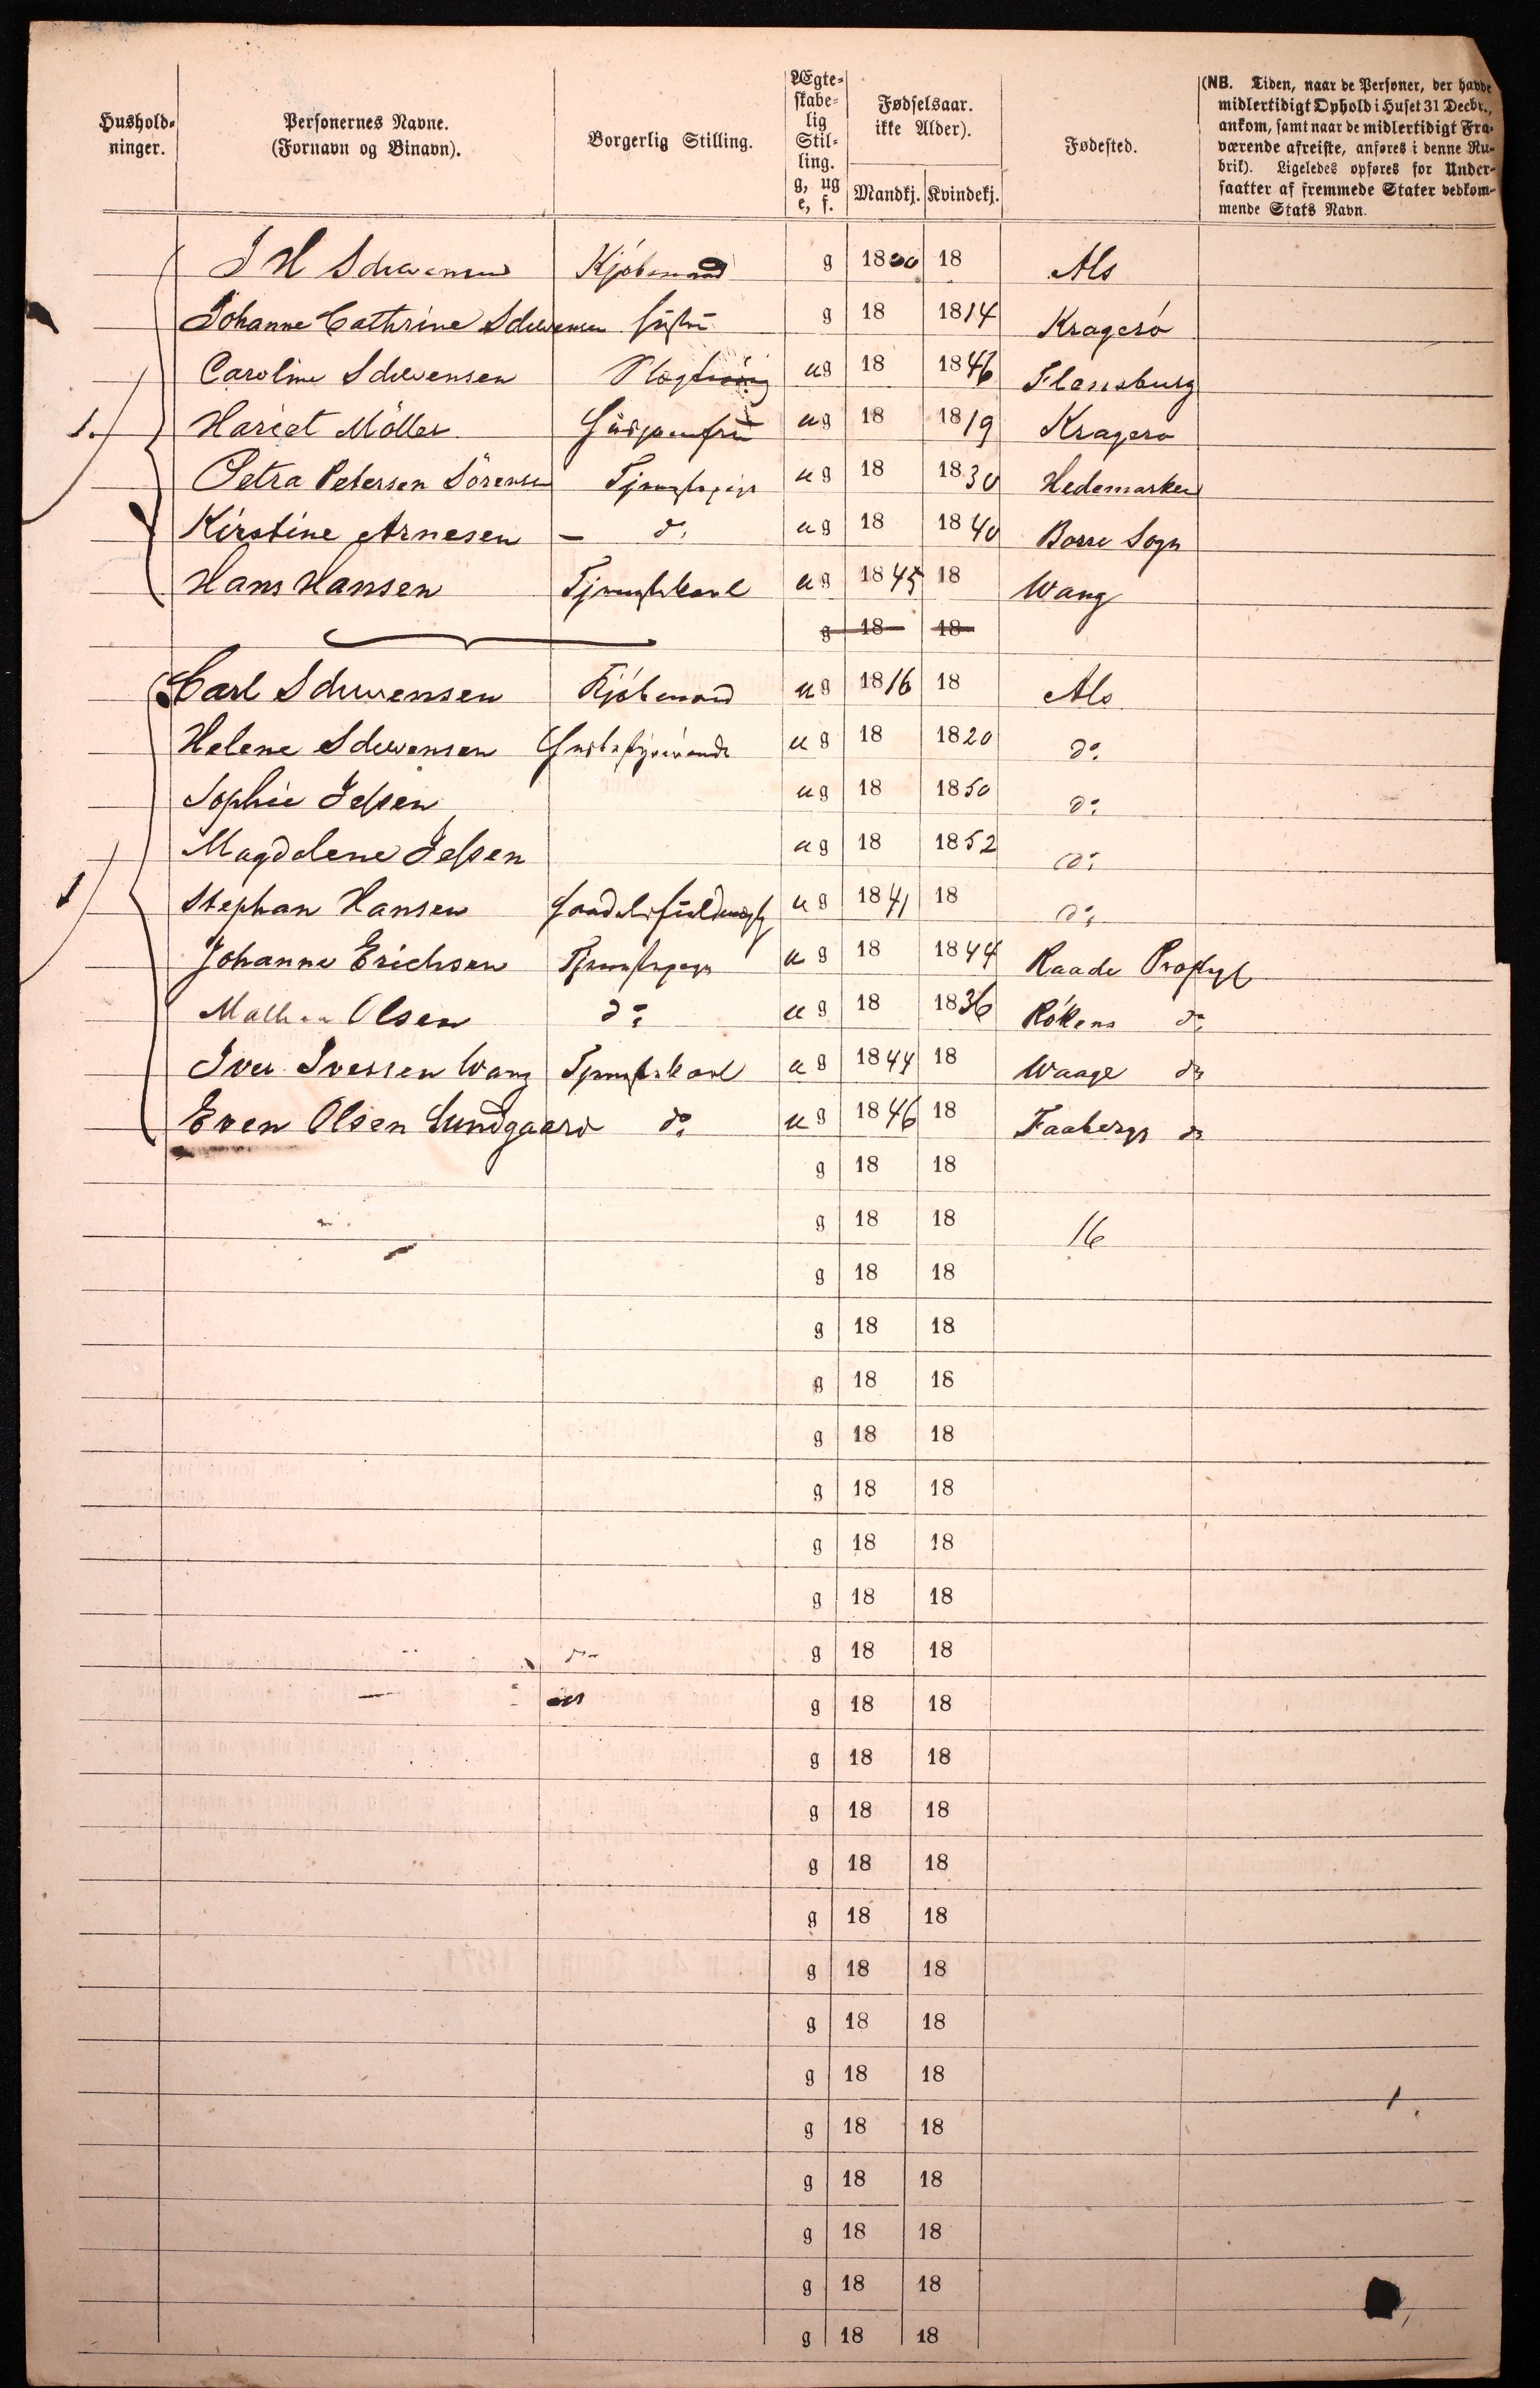 Hushold-
ninger.
Personernes Navne.
(Fornavn og Binavn).
Borgerlig Stilling.
Ægte-
skabe-
lig
Stil-
ling.
g, ug
e, f.
Fødselsaar.
ikke Alder).
Mandkj. Kvindekj.
Fødested.
(NB. Tiden, naar de Personer, der havde
midlertidigt Ophold i Huset 31 Decbr.,
ankom, samt naar de midlertidigt Fra-
værende afreiste, anføres i denne Ru-
brik). Ligeledes opføres for Under-
saatter af fremmede Stater vedkom-
mende Stats Navn.
J H Schwensen Kjøbmand g 1800 18 Als
Johanne Cathrine Schwensen Hustru g 18 1814 Kragerø
Caroline Schwensen ug 18 1846 Flensburg
1. Hariet Möller Huusjomfru ug 18 1819 Kragerø
Petra Petersen Sörensen Tjenestepige ug 18 1830 Hedemarken
Kirstine Arnesen — do. ug 18 1840 Borre Sogn
Hans Hansen Tjenestekarl ug 1845 18 Wang
g 18 18
Carl Schwensen Kjøbmand ug 1816 18 Als
Helene Schwensen Huusbestyrerinde ug 18 1820 do.
Sophie Jessen ug 18 1850 do.
Magdalene Jessen ug 18 1852 do.
1 Stephan Hansen Handelsfuldmægtig ug 1841 18 do.
Johanne Erichsen Tjenestepige ug 18 1844 Raade Præstgj
Olsen do. ug 18 1836 Rökens do.
Iver Iversen Wang Tjenestekarl ug 1844 18 Waage do
Even Olsen Lundgaard do. ug 1846 18 Faabergs do
g 18 18
g 18 18 16
g 18 18
g 18 18
g 18 18
g 18 18
g 18 18
g 18 18
g 18 18
g 18 18
g 18 18
g 18 18
g 18 18
g 18 18
g 18 18
g 18 18
g 18 18
g 18 18
g 18 18
g 18 18
g 18 18
g 18 18
g 18 18